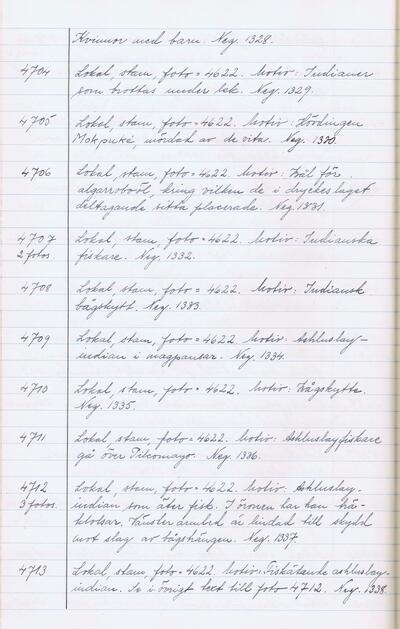 Kvinnor med barn. Neg. 1328.
4704 Lokal, stam, foto = 4622. Motiv: Indianer
som brottas under lek. Neg. 1329.
4705 Lokal, stam, foto = 4622. Motiv: Hövdingen
Mokpuké, mördad av de vita. Neg. 1330.
4706 Lokal, stam, foto = 4622. Motiv: Trål för
algarroboöl, kring vilken de i dryckeslaget
deltagande sitta placerade. Neg. 1331.
4707 Lokal, stam, foto = 4622. Motiv: Indianska
2 fotos. fiskare. Neg. 1332.
4708 Lokal, stam, foto = 4622. Motiv: Indiansk
bågskytt. Neg. 1333.
4709 Lokal, stam, foto = 4622. Motiv: Ashluslay-
indian i magpansar. Neg. 1334.
4710 Lokal, stam, foto = 4622. Motiv: Bågskytte.
Neg. 1335.
4711 Lokal, stam, foto = 4622. Motiv: Ashluslayfiskare
gå över Pilcomayo. Neg. 1336.
4712 Lokal, stam, foto = 4622. Motiv: Ashluslay-
3 fotos. indian, som äter fisk. I öronen har han trä-
klotsar. Vänster armled är lindad till skydd
mot slag av bågsträngen. Neg. 1337.
4713 Lokal, stam, foto = 4622. Motiv: Fiskätande ashluslay-
indian. Se i övrigt text till foto 4712. Neg. 1338.